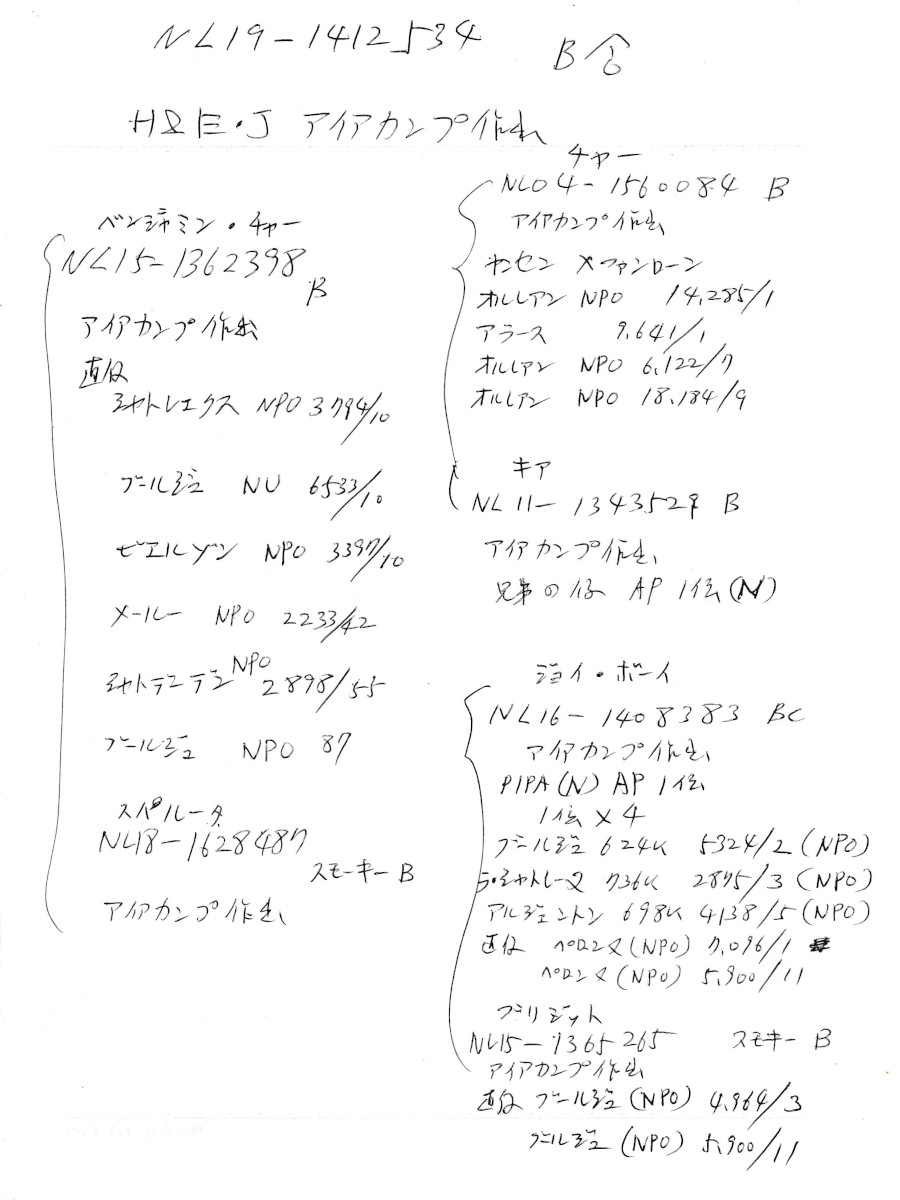 NL19-1412534 B合
H&E.J アイアカンプ作出
ベンジャミン・チャー
NL15-1362398
B
アイアカンプ作出
直仔
シャトレエクス NPO 3794/10
ブールジュ NU 6533/10
ビエルゾン NPO 3397/10
メールー NPO 2233/42
シャトデニデン NPO 2898/55
ブールジュ NPO 87
スパルータ
NL18-1628487
スモーキーB
アイアカンプ作出
チャー
NL04-1560084 B
アイアカンプ作出
ヤンセン×ファンローン
オルレアン NPO 14,285/1
アラース 9,641/1
オルレアン NPO 6,122/7
オルレアン NPO 18,184/9
キア
NL11-1343529 B
アイアカンプ作出
兄弟の仔 AP 1位(N)
ジョイ・ボーイ
NL16-1408383 BC
アイアカンプ作出
PIPA(N) AP 1位
1位×4
ブールジュ 624K 5324/2(NPO)
ラ・シャトレーヌ 736K 2875/3(NPO)
アルジェントン 698K 4138/5(NPO)
直仔 ペロンヌ(NPO) 7,096/1
ペロンヌ(NPO) 5,900/11
ブリジット
NL15-1365265 スモキーB
アイアカンプ作出
直仔 ブールジュ(NPO) 4,964/3
ブールジュ(NPO) 5,900/11